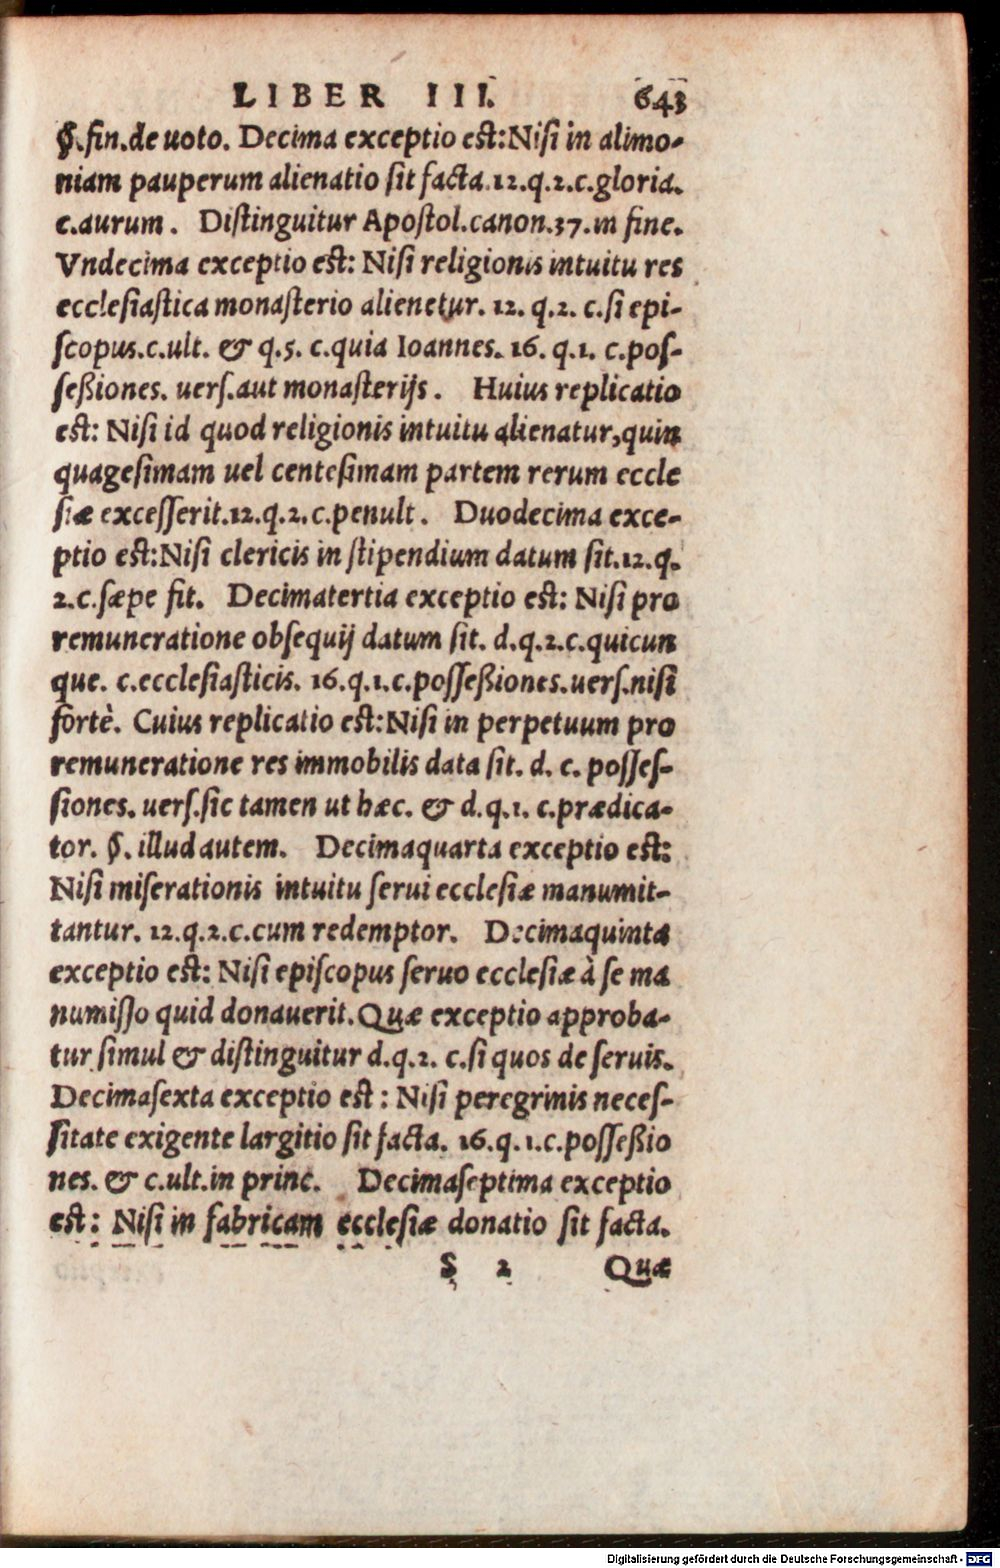 LIBER III. 643
§.fin.de uoto. Decima exceptio est:Nisi in alimo-
niam pauperum alienatio sit facta.12.q.2.c.gloria.
c.aurum. Distinguitur Apostol.canon.37.in fine.
Vndecima exceptio est: Nisi religionis intuitu res
ecclesiastica monasterio alienetur. 12. q.2. c.si epi-
scopus.c.ult. & q.5. c.quia Ioannes. 16. q.1. c.pos-
seßiones. uers.aut monasterijs. Huius replicatio
est: Nisi id quod religionis intuitu alienatur,quin
quagesimam uel centesimam partem rerum eccle
siæ excesserit.12.q.2.c.penult. Duodecima exce-
ptio est:Nisi clericis in stipendium datum sit.12.q.
2.c.sæpe fit. Decimatertia exceptio est: Nisi pro
remuneratione obsequij datum sit. d.q.2.c.quicun
que. c.ecclesiasticis. 16.q.1.c.posseßiones.uers.nisi
fortè. Cuius replicatio est:Nisi in perpetuum pro
remuneratione res immobilis data sit. d. c. posses-
siones. uers.sic tamen ut hæc. & d.q.1. c.prædica-
tor. §. illud autem. Decimaquarta exceptio est:
Nisi miserationis intuitu serui ecclesiæ manumit-
tantur. 12.q.2.c.cum redemptor. Decimaquinta
exceptio est: Nisi episcopus seruo ecclesiæ à se ma
numisso quid donauerit.Quæ exceptio approba-
tur simul & distinguitur d.q.2. c.si quos de seruis.
Decimasexta exceptio est : Nisi peregrinis neces-
sitate exigente largitio sit facta. 16.q.1.c.posseßio
nes. & c.ult.in princ. Decimaseptima exceptio
est: Nisi in fabricam ecclesiæ donatio sit facta.
S 2 Quæ
Digitalisierung gefördert durch die Deutsche Forschungsgemeinschaft - DFG